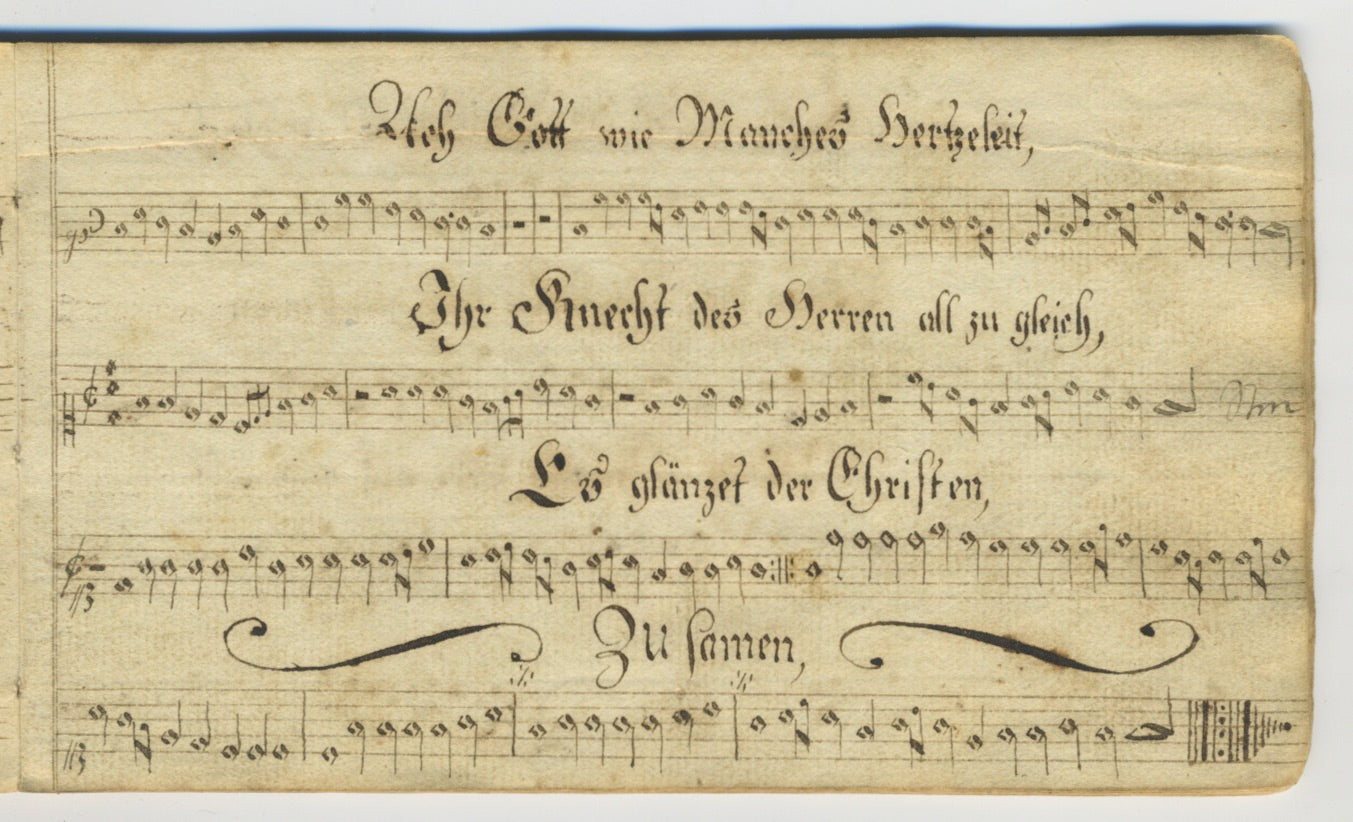 Ach Gott wie Manches Hertzeleit,
Ihr Knecht des Herren all zu gleich,
Es glänzet der Christen,
Zu samen,